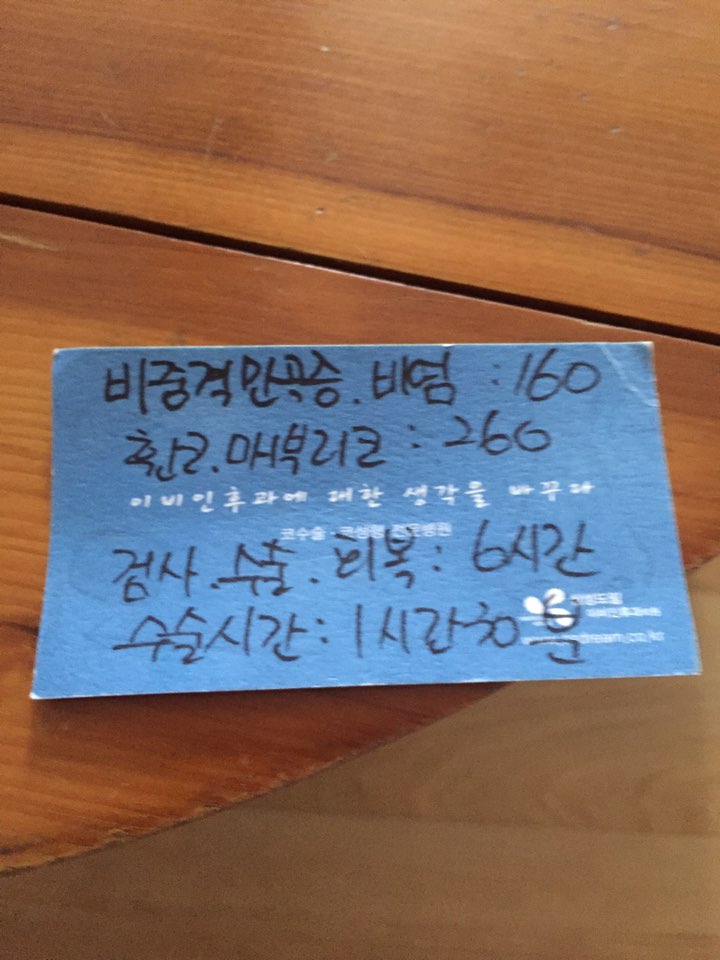 비중격만곡증. 비염 : 160
휜코. 매부리코 : 260
이비인후과에 대한 생각을 바꾸다
코수술 · 코성형 전문병원
검사. 수술. 회복 : 6시간
수술시간 : 1시간 30분
이비인후과
dream.co.kr